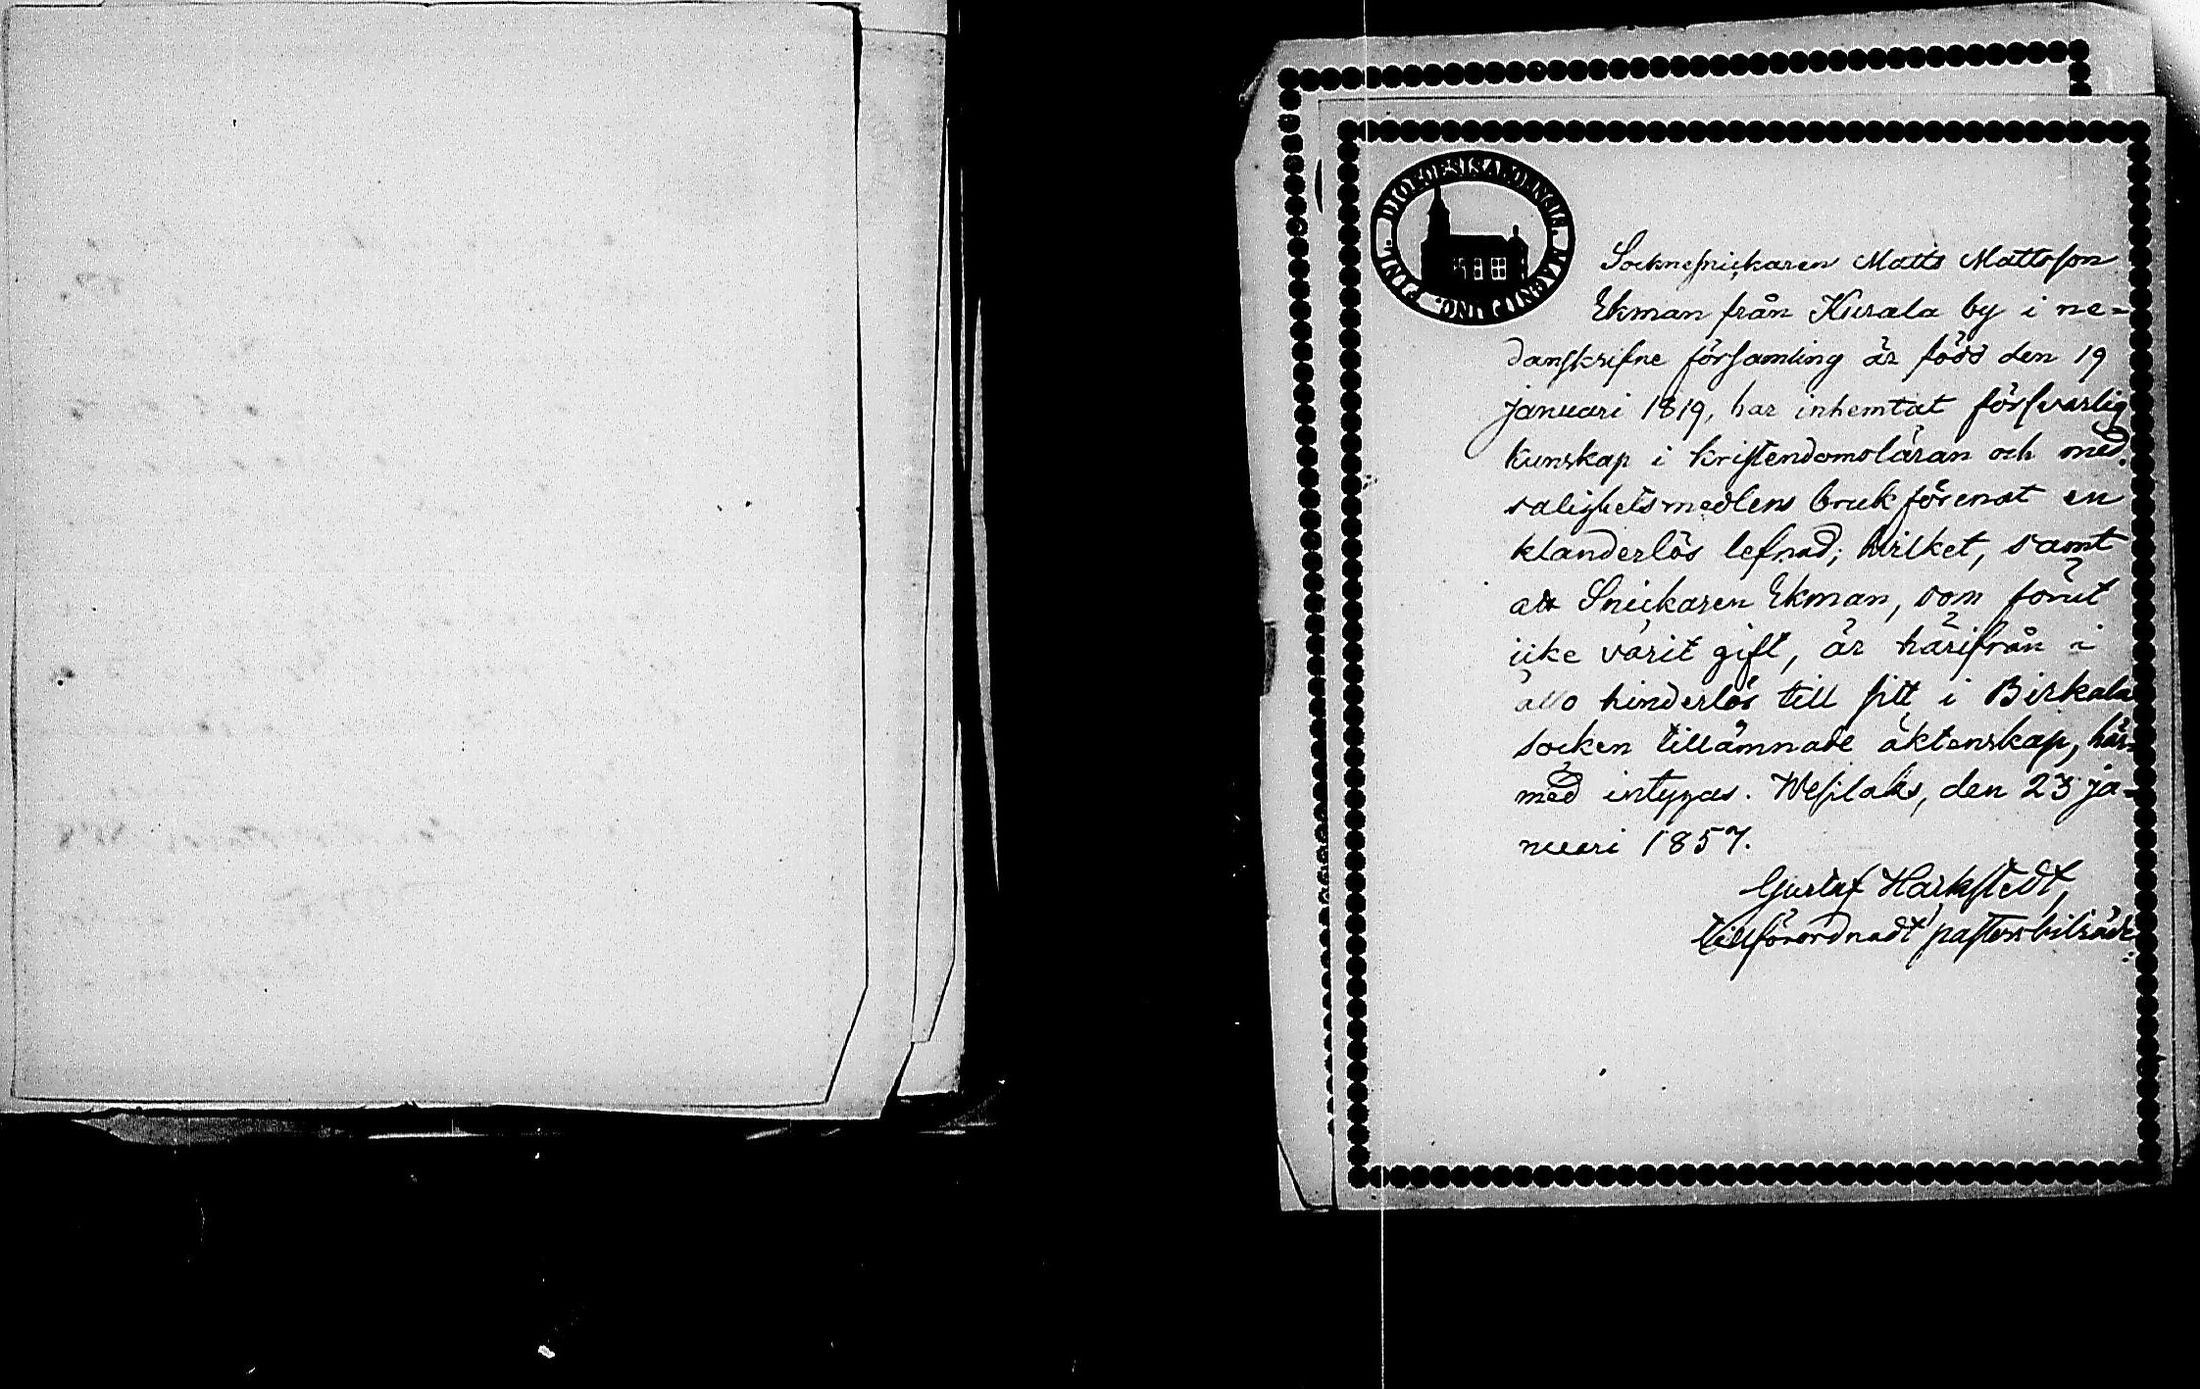 DIOECESIS ABOENSIS. MAGNI DUC. FINL.
Socknesnickaren Matts Mattsson
Ekman från Kurala by i ne=
danskrifne församling är född den 19
januari 1819, har inhemtat försvarlig
kunskap i kristendomsläran och med
salighetsmedlens bruk förenat en
klanderlös lefnad; hvilket, samt
att Snickaren Ekman, som förut
icke varit gift, är härifrån i
allo hinderlös till sitt i Birkala
socken tillämnade äktenskap, här=
med intygas. Wesilaks, den 23 ja=
nuari 1857.
Gustaf Harkstedt,
tillförordnadt pastorsbiträde